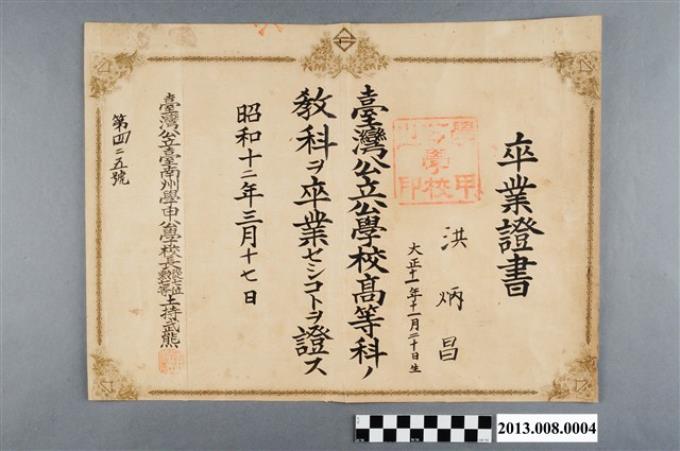 卒業證書
洪炳昌
大正十一年十一月二十日生
學甲
公學校
印
臺灣公立公學校高等科ノ
教科ヲ卒業セシコトヲ證ス
昭和十二年三月十七日
臺灣公立臺南州學甲公學校長
土持武熊
第四二五號
2013.008.0004